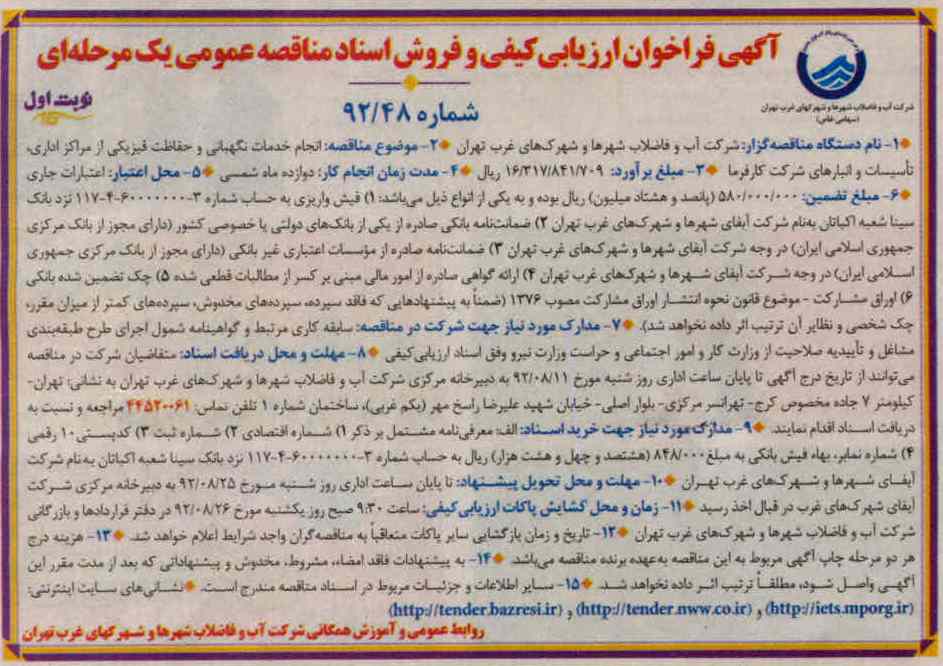 آگهی فراخوان ارزیابی کیفی و فروش اسناد مناقصه عمومی یک مرحله‌ای
شرکت آب و فاضلاب شهرها و شهرکهای غرب تهران
(سهامی خاص)
نوبت اول
شماره ۹۲/۴۸
۱- نام دستگاه مناقصه‌گزار: شرکت آب و فاضلاب شهرها و شهرک‌های غرب تهران ۲- موضوع مناقصه: انجام خدمات نگهبانی و حفاظت فیزیکی از مراکز اداری،
تأسیسات و انبارهای شرکت کارفرما ۳- مبلغ برآورد: ۱۶/۳۱۷/۸۴۱/۷۰۹ ریال ۴- مدت زمان انجام کار: دوازده ماه شمسی ۵- محل اعتبار: اعتبارات جاری
۶- مبلغ تضمین: ۵۸۰/۰۰۰/۰۰۰ (پانصد و هشتاد میلیون) ریال بوده و به یکی از انواع ذیل می‌باشد: ۱) فیش واریزی به حساب شماره ۳-۶۰۰۰۰۰۰۰-۴-۱۱۷ نزد بانک
سینا شعبه اکباتان به‌نام شرکت آبفای شهرها و شهرک‌های غرب تهران ۲) ضمانت‌نامه بانکی صادره از یکی از بانک‌های دولتی یا خصوصی کشور (دارای مجوز از بانک مرکزی
جمهوری اسلامی ایران) در وجه شرکت آبفای شهرها و شهرک‌های غرب تهران ۳) ضمانت‌نامه صادره از مؤسسات اعتباری غیر بانکی (دارای مجوز از بانک مرکزی جمهوری
اسلامی ایران) در وجه شرکت آبفای شهرها و شهرک‌های غرب تهران ۴) ارائه گواهی صادره از امور مالی مبنی بر کسر از مطالبات قطعی شده ۵) چک تضمین شده بانکی
۶) اوراق مشارکت - موضوع قانون نحوه انتشار اوراق مشارکت مصوب ۱۳۷۶ (ضمناً به پیشنهادهایی که فاقد سپرده، سپرده‌های مخدوش، سپرده‌های کمتر از میزان مقرر،
چک شخصی و نظایر آن ترتیب اثر داده نخواهد شد). ۷- مدارک مورد نیاز جهت شرکت در مناقصه: سابقه کاری مرتبط و گواهینامه شمول اجرای طرح طبقه‌بندی
مشاغل و تأییدیه صلاحیت از وزارت کار و امور اجتماعی و حراست وزارت نیرو وفق اسناد ارزیابی کیفی ۸- مهلت و محل دریافت اسناد: متقاضیان شرکت در مناقصه
می‌توانند از تاریخ درج آگهی تا پایان ساعت اداری روز شنبه مورخ ۹۲/۰۸/۱۱ به دبیرخانه مرکزی شرکت آب و فاضلاب شهرها و شهرک‌های غرب تهران به نشانی: تهران-
کیلومتر ۷ جاده مخصوص کرج- تهرانسر مرکزی- بلوار اصلی- خیابان شهید علیرضا راسخ مهر (یکم غربی)، ساختمان شماره ۱ تلفن تماس: ۴۴۵۲۰۰۶۱ مراجعه و نسبت به
دریافت اسناد اقدام نمایند. ۹- مدارک مورد نیاز جهت خرید اسناد: الف: معرفی‌نامه مشتمل بر ذکر ۱) شماره اقتصادی ۲) شماره ثبت ۳) کدپستی ۱۰ رقمی
۴) شماره نمابر، ب) فیش بانکی به مبلغ ۸۴۸/۰۰۰ (هشتصد و چهل و هشت هزار) ریال به حساب شماره ۳-۶۰۰۰۰۰۰۰-۴-۱۱۷ نزد بانک سینا شعبه اکباتان به‌نام شرکت
آبفای شهرها و شهرک‌های غرب تهران ۱۰- مهلت و محل تحویل پیشنهاد: تا پایان ساعت اداری روز شنبه مورخ ۹۲/۰۸/۲۵ به دبیرخانه مرکزی شرکت
آبفای شهرک‌های غرب در قبال اخذ رسید ۱۱- زمان و محل گشایش پاکات ارزیابی کیفی: ساعت ۹:۳۰ صبح روز یکشنبه مورخ ۹۲/۰۸/۲۶ در دفتر قراردادها و بازرگانی
شرکت آب و فاضلاب شهرها و شهرک‌های غرب تهران ۱۲- تاریخ و زمان بازگشایی سایر پاکات متعاقباً به مناقصه‌گران واجد شرایط اعلام خواهد شد. ۱۳- هزینه درج
هر دو مرحله چاپ آگهی مربوط به این مناقصه به‌عهده برنده مناقصه می‌باشد. ۱۴- به پیشنهادات فاقد امضاء، مشروط، مخدوش و پیشنهاداتی که بعد از مدت مقرر این
آگهی واصل شود، مطلقاً ترتیب اثر داده نخواهد شد. ۱۵- سایر اطلاعات و جزئیات مربوط در اسناد مناقصه مندرج است. نشانی‌های سایت اینترنتی:
(http://iets.mporg.ir) و (http://tender.nww.co.ir) و (http://tender.bazresi.ir)
روابط عمومی و آموزش همگانی شرکت آب و فاضلاب شهرها و شهرکهای غرب تهران